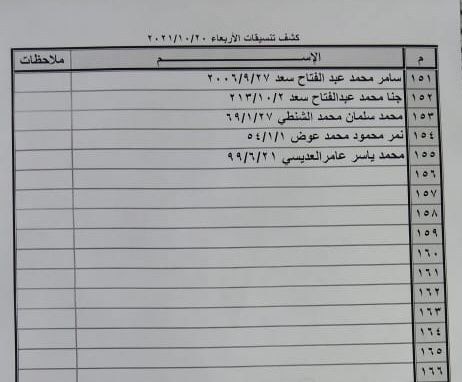 كشف تنسيقات الأربعاء ٢٠٢١/١٠/٢٠
م الإســـــم ملاحظات
١٥١ سامر محمد عبد الفتاح سعد ٢٠٠٦/٩/٢٧
١٥٢ جنا محمد عبدالفتاح سعد ٢١٣/١٠/٢
١٥٣ محمد سلمان محمد الشنطي ٦٩/١/٢٧
١٥٤ نمر محمود محمد عوض ٥٤/١/١
١٥٥ محمد ياسر عامر العديسي ٩٩/٦/٢١
١٥٦
١٥٧
١٥٨
١٥٩
١٦٠
١٦١
١٦٢
١٦٣
١٦٤
١٦٥
١٦٦